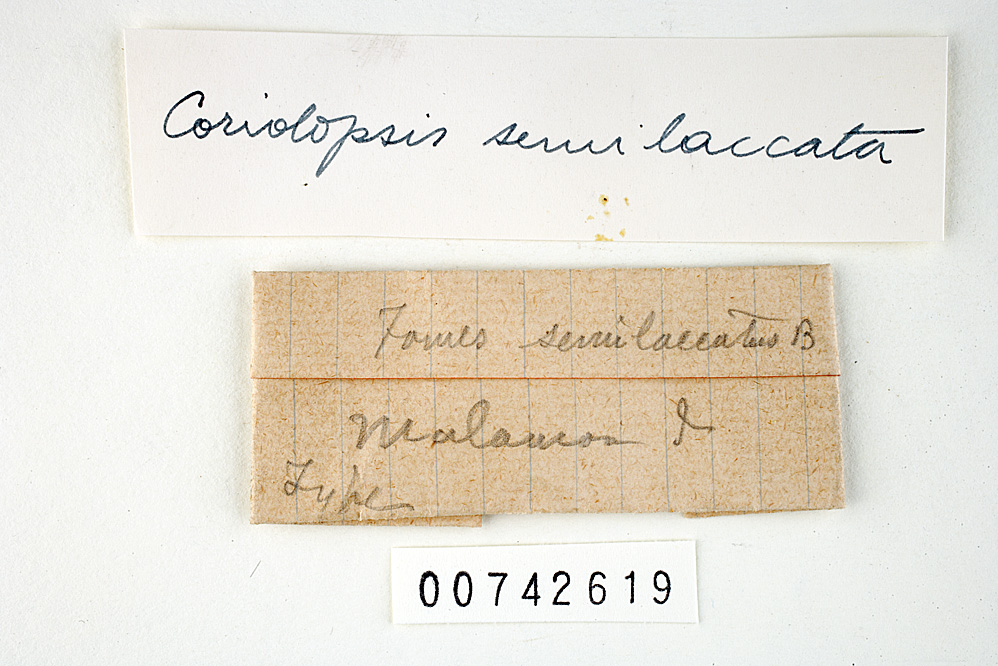 Coriolopsis semilaccata
Fomes semilaccatus B
Malamon I
Type
00742619